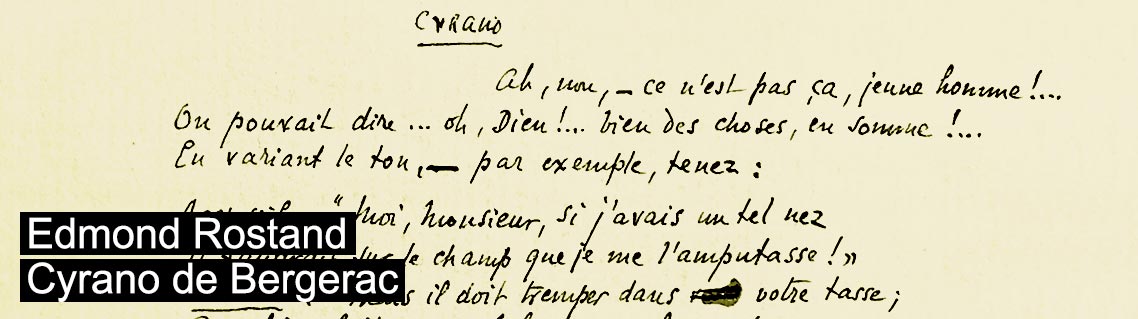 Cyrano
Ah, non, — ce n'est pas ça, jeune homme !...
On pouvait dire ... oh, Dieu !... bien des choses, en somme !...
En variant le ton, — par exemple, tenez :
" Moi, monsieur, si j'avais un tel nez
le champ que je me l'amputasse ! »
Edmond Rostand
Cyrano de Bergerac
il doit tremper dans votre tasse ;